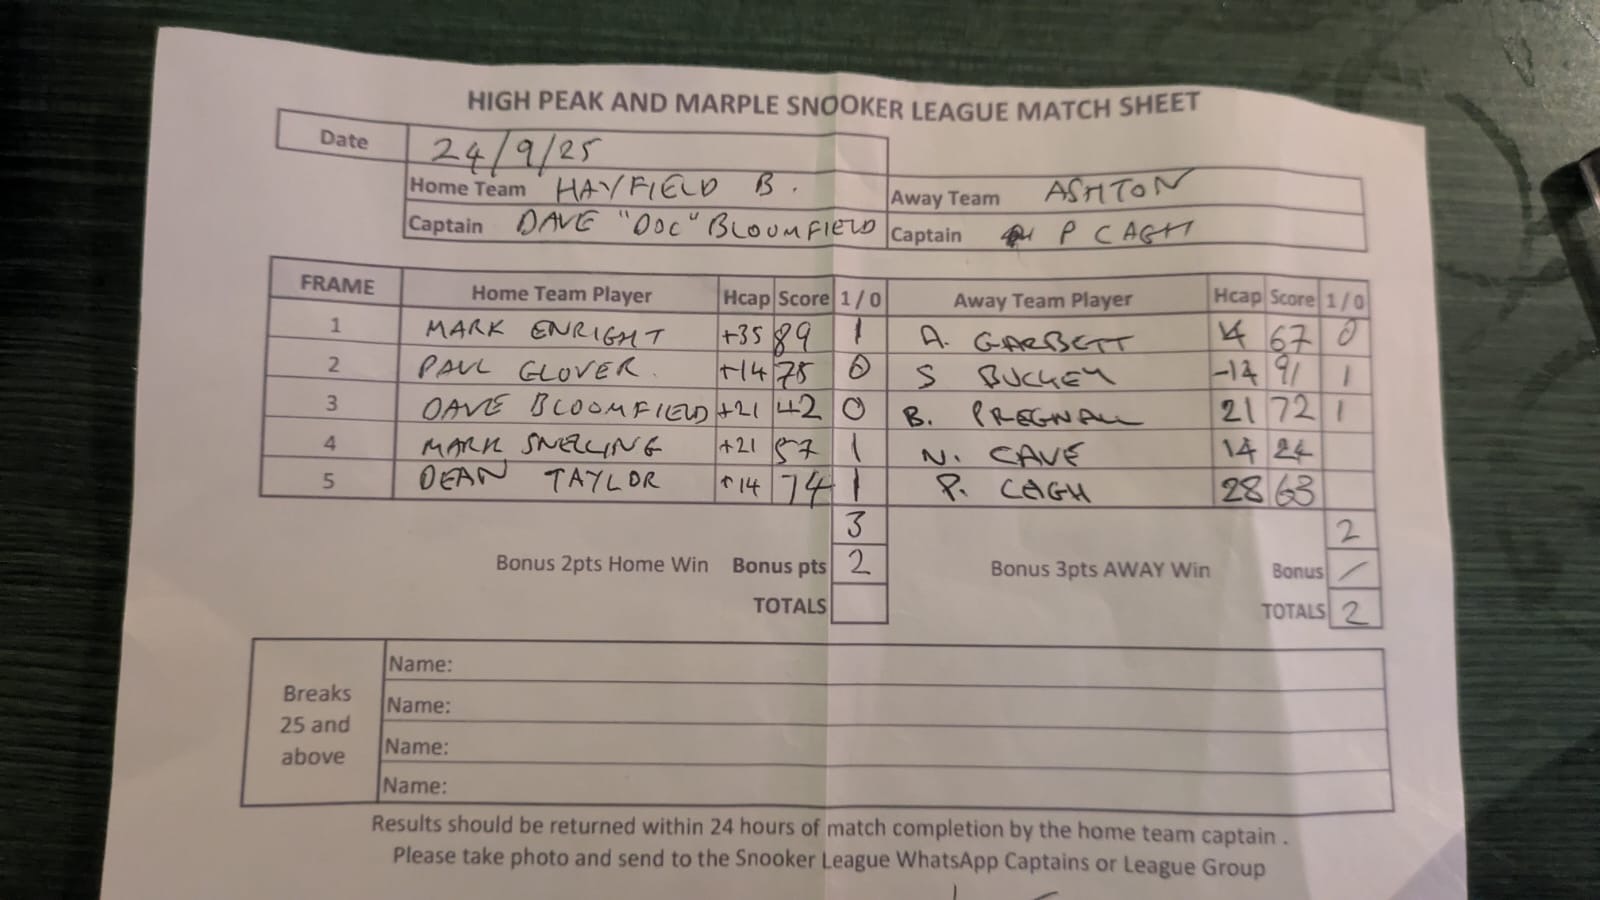 HIGH PEAK AND MARPLE SNOOKER LEAGUE MATCH SHEET
Date 24/9/25
Home Team HAYFIELD B. Away Team ASHTON
Captain DAVE "DOC" BLOOMFIELD Captain P CAGH
FRAME Home Team Player Hcap Score 1 / 0 Away Team Player Hcap Score 1 / 0
1 MARK ENRIGHT +35 89 1 A. GARBETT 67 0
2 PAUL GLOVER. +14 1 S BUCKEY 91 1
3 DAVE BLOOMFIELD +21 42 0 B. PREGNALL 21 72 1
4 MARK SNELLING +21 57 1 N. CAVE 14 24
5 DEAN TAYLOR +14 74 1 P. CAGH 28 63
3 2
Bonus 2pts Home Win Bonus pts 2 Bonus 3pts AWAY Win Bonus /
TOTALS TOTALS 2
Breaks 25 and above
Name:
Name:
Name:
Name:
Results should be returned within 24 hours of match completion by the home team captain .
Please take photo and send to the Snooker League WhatsApp Captains or League Group